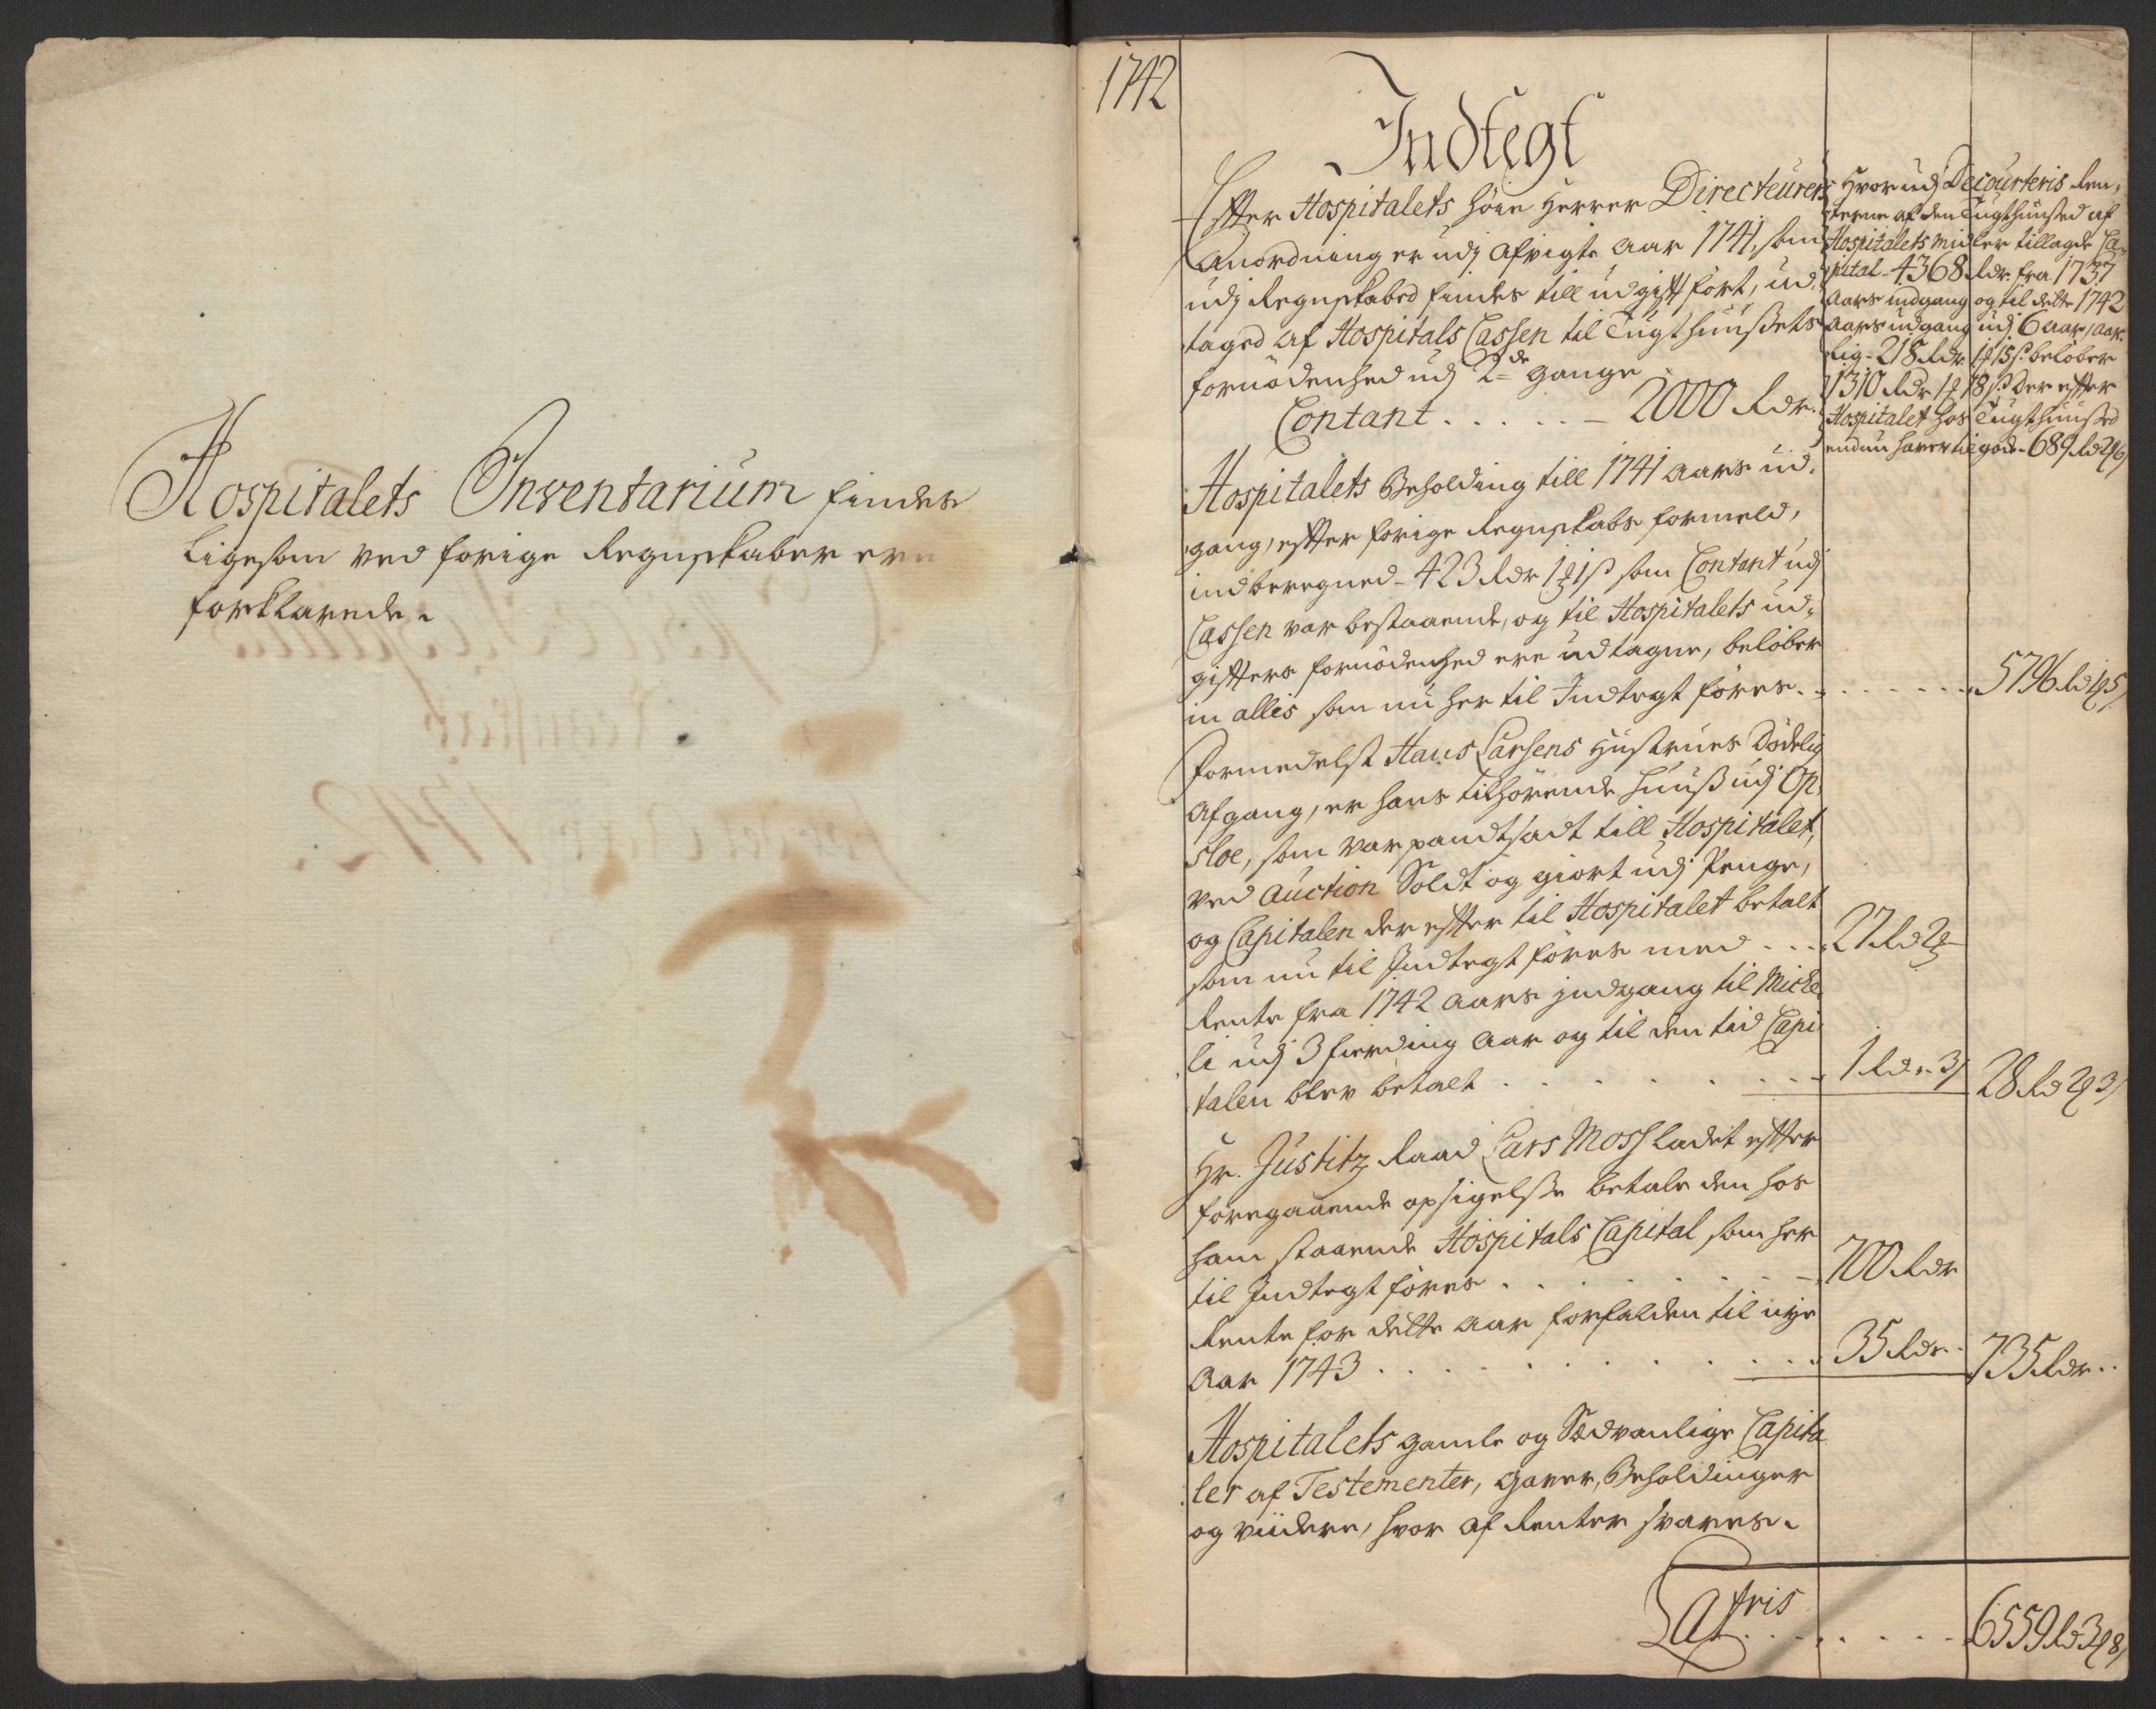 Hospitalets Inventarium findes
ligesom ved forige Regnskaber ere
forklarede.
1742
Indtegt
Efter Hospitalets höie Herrer Directeurers
Anordning er udj afvigte Aar 1741, som
udj Regnskabed findes till udgift fört, ud¸
taged af Hospitals Cassen til Tugthuussets
fornödenhed udj 2de gange
Contant . . . . . – 2000 Rdr.
Hvor udj Decourteris Ren¸
terne af den Tugthuused af
Hospitalets midler tillagde Ca¸
pital – 4368 Rdr. fra 1737
Aars indgang og til dette 1742
Aars udgang udj 6 aar, aar¸
lig – 218 Rdr 1 ₰ 15 s: belöber
1310 Rdr 1 ₰ 18 s: Der efter
Hospitalet hos Tugthuused
endnu haver til gode – 689 Rd 2 ₰ 6
Hospitalets Beholding till 1741 Aars ud¸
gang, efter forige Regnskabs formeld,
indberegned – 423 Rdr 1 ₰ 1 s som Contant udj
Cassen var bestaaende, og til Hospitalets ud¸
gifters fornödenhed ere udtagne, belöber
in alles som nu her til Indtegt föres . . . . . . 5796 Rd 1 ₰ 5
Formedelst Hans Larsens Hustrues Dödelig
Afgang, er hans tilhörende Huuss udj Op¸
sloe, som var pandtsadt till Hospitalet,
ved Auction Soldt og giort udj Penge,
og Capitalen der efter til Hospitalet betalt
som nu til Indtegt föres med . . . 27 Rd 2 ₰ –
Rente fra 1742 Aars indgang til Miche¸
li udj 3 fierding Aar og til den tid Capi¸
talen blev betalt . . . . . . 1 Rdr – 3 28 Rd 2 ₰ 3
Hr. Justitz Raad Lars Moss ladet efter
foregaaende opsigelsse betale den hos
ham staaende Hospitals Capital som her
til Indtegt föres . . . . . . 700 Rdr
Rente for dette Aar forfalden til nye
Aar 1743 . . . . . . . . 35 Rdr – 735 Rdr . .
Hospitalets gamle og Sædvanlige Capita
ler af Testementer, Gaver, Beholdinger
og viidere, hvor af Renter svares.
Latris . . . . . . . 6559 Rd 3 ₰ 8